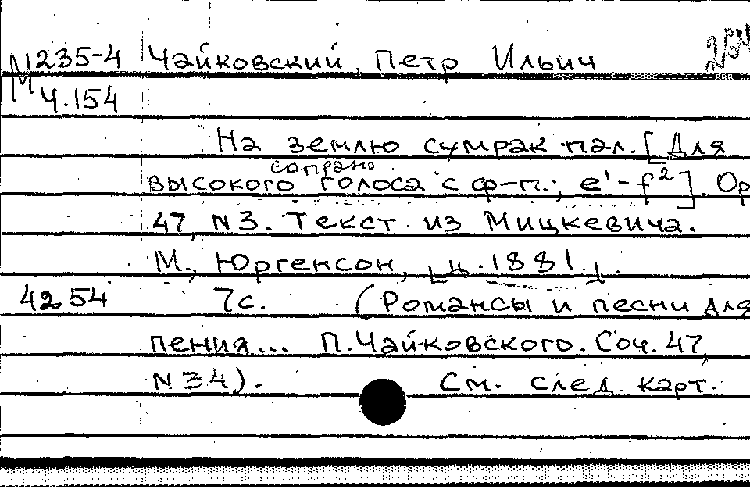 М 235-4 Чайковский, Петр Ильич
Ч.154
На землю сумрак пал. [Для
сопрано
высокого голоса с ф-п.; e¹-f²]. Ор
47, N3. Текст из Мицкевича.
М., Юргенсон, ц. 1881.
4254 7с. (Романсы и песни для
пения... П. Чайковского. Соч. 47,
N34). См. след. карт.